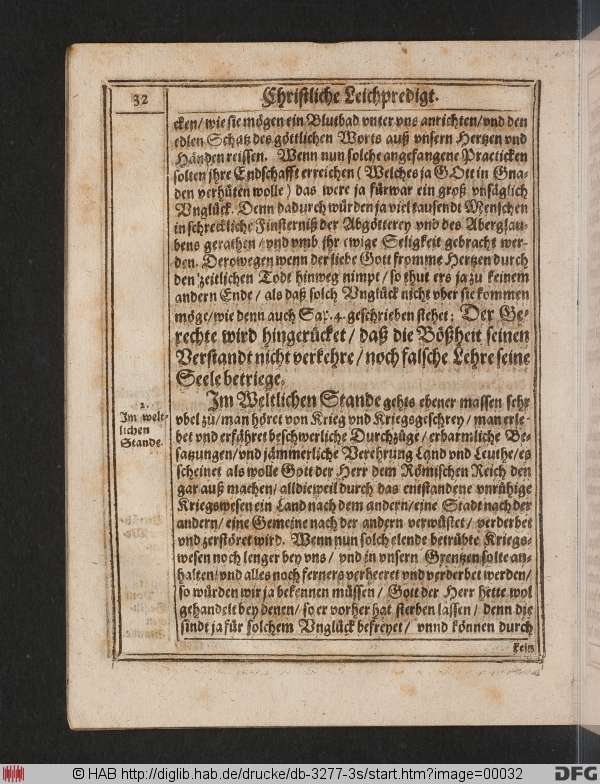 32
Christliche Leichpredigt.
cken/ wie sie mögen ein Blutbad vnter vns anrichten/ vnd den
edlen Schatz des göttlichen Worts auß vnsern Hertzen vnd
Händen reissen. Wenn nun solche angefangene Practicken
solten jhre Endschafft erreichen (Welches ja GOtt in Gna-
den verhüten wolle) das were ja fürwar ein groß vnsäglich
Vnglück. Denn dadurch würden ja viel tausendt Menschen
in schreckliche Finsterniß der Abgötterey vnd des Aberglau-
bens gerathen/ vnd vmb jhr ewige Seligkeit gebracht wer-
den. Derowegen wenn der liebe Gott fromme Hertzen durch
den zeitlichen Todt hinweg nimpt/ so thut ers ja zu keinem
andern Ende/ als daß solch Vnglück nicht vber sie kommen
möge/ wie denn auch Sap. 4. geschrieben stehet: Der Ge-
rechte wird hingerücket/ daß die Bößheit seinen
Verstandt nicht verkehre/ noch falsche Lehre seine
Seele betriege.
2.
Im welt-
lichen
Stande.
Im Weltlichen Stande gehts ebener massen sehr
vbel zu/ man höret von Krieg vnd Kriegsgeschrey/ man erle-
bet vnd erfähret beschwerliche Durchzüge/ erbarmliche Be-
satzungen/ vnd jämmerliche Verehrung Land vnd Leuthe/ es
scheinet als wolle Gott der Herr dem Römischen Reich den
gar auß machen/ alldieweil durch das entstandene vnrühige
Kriegswesen ein Land nach dem andern/ eine Stadt nach der
andern/ eine Gemeine nach der andern verwüstet/ verderbet
vnd zerstöret wird. Wenn nun solch elende betrübte Kriegs-
wesen noch lenger bey vns/ vnd in vnsern Grentzen solte an-
halten/ vnd alles noch ferners verheeret vnd verderbet werden/
so würden wir ja bekennen müssen/ Gott der Herr hette wol
gehandelt bey denen/ so er vorher hat sterben lassen/ denn die
sindt ja für solchem Vnglück befreyet/ vnnd können durch
kein
© HAB http://diglib.hab.de/drucke/db-3277-3s/start.htm?image=00032
DFG